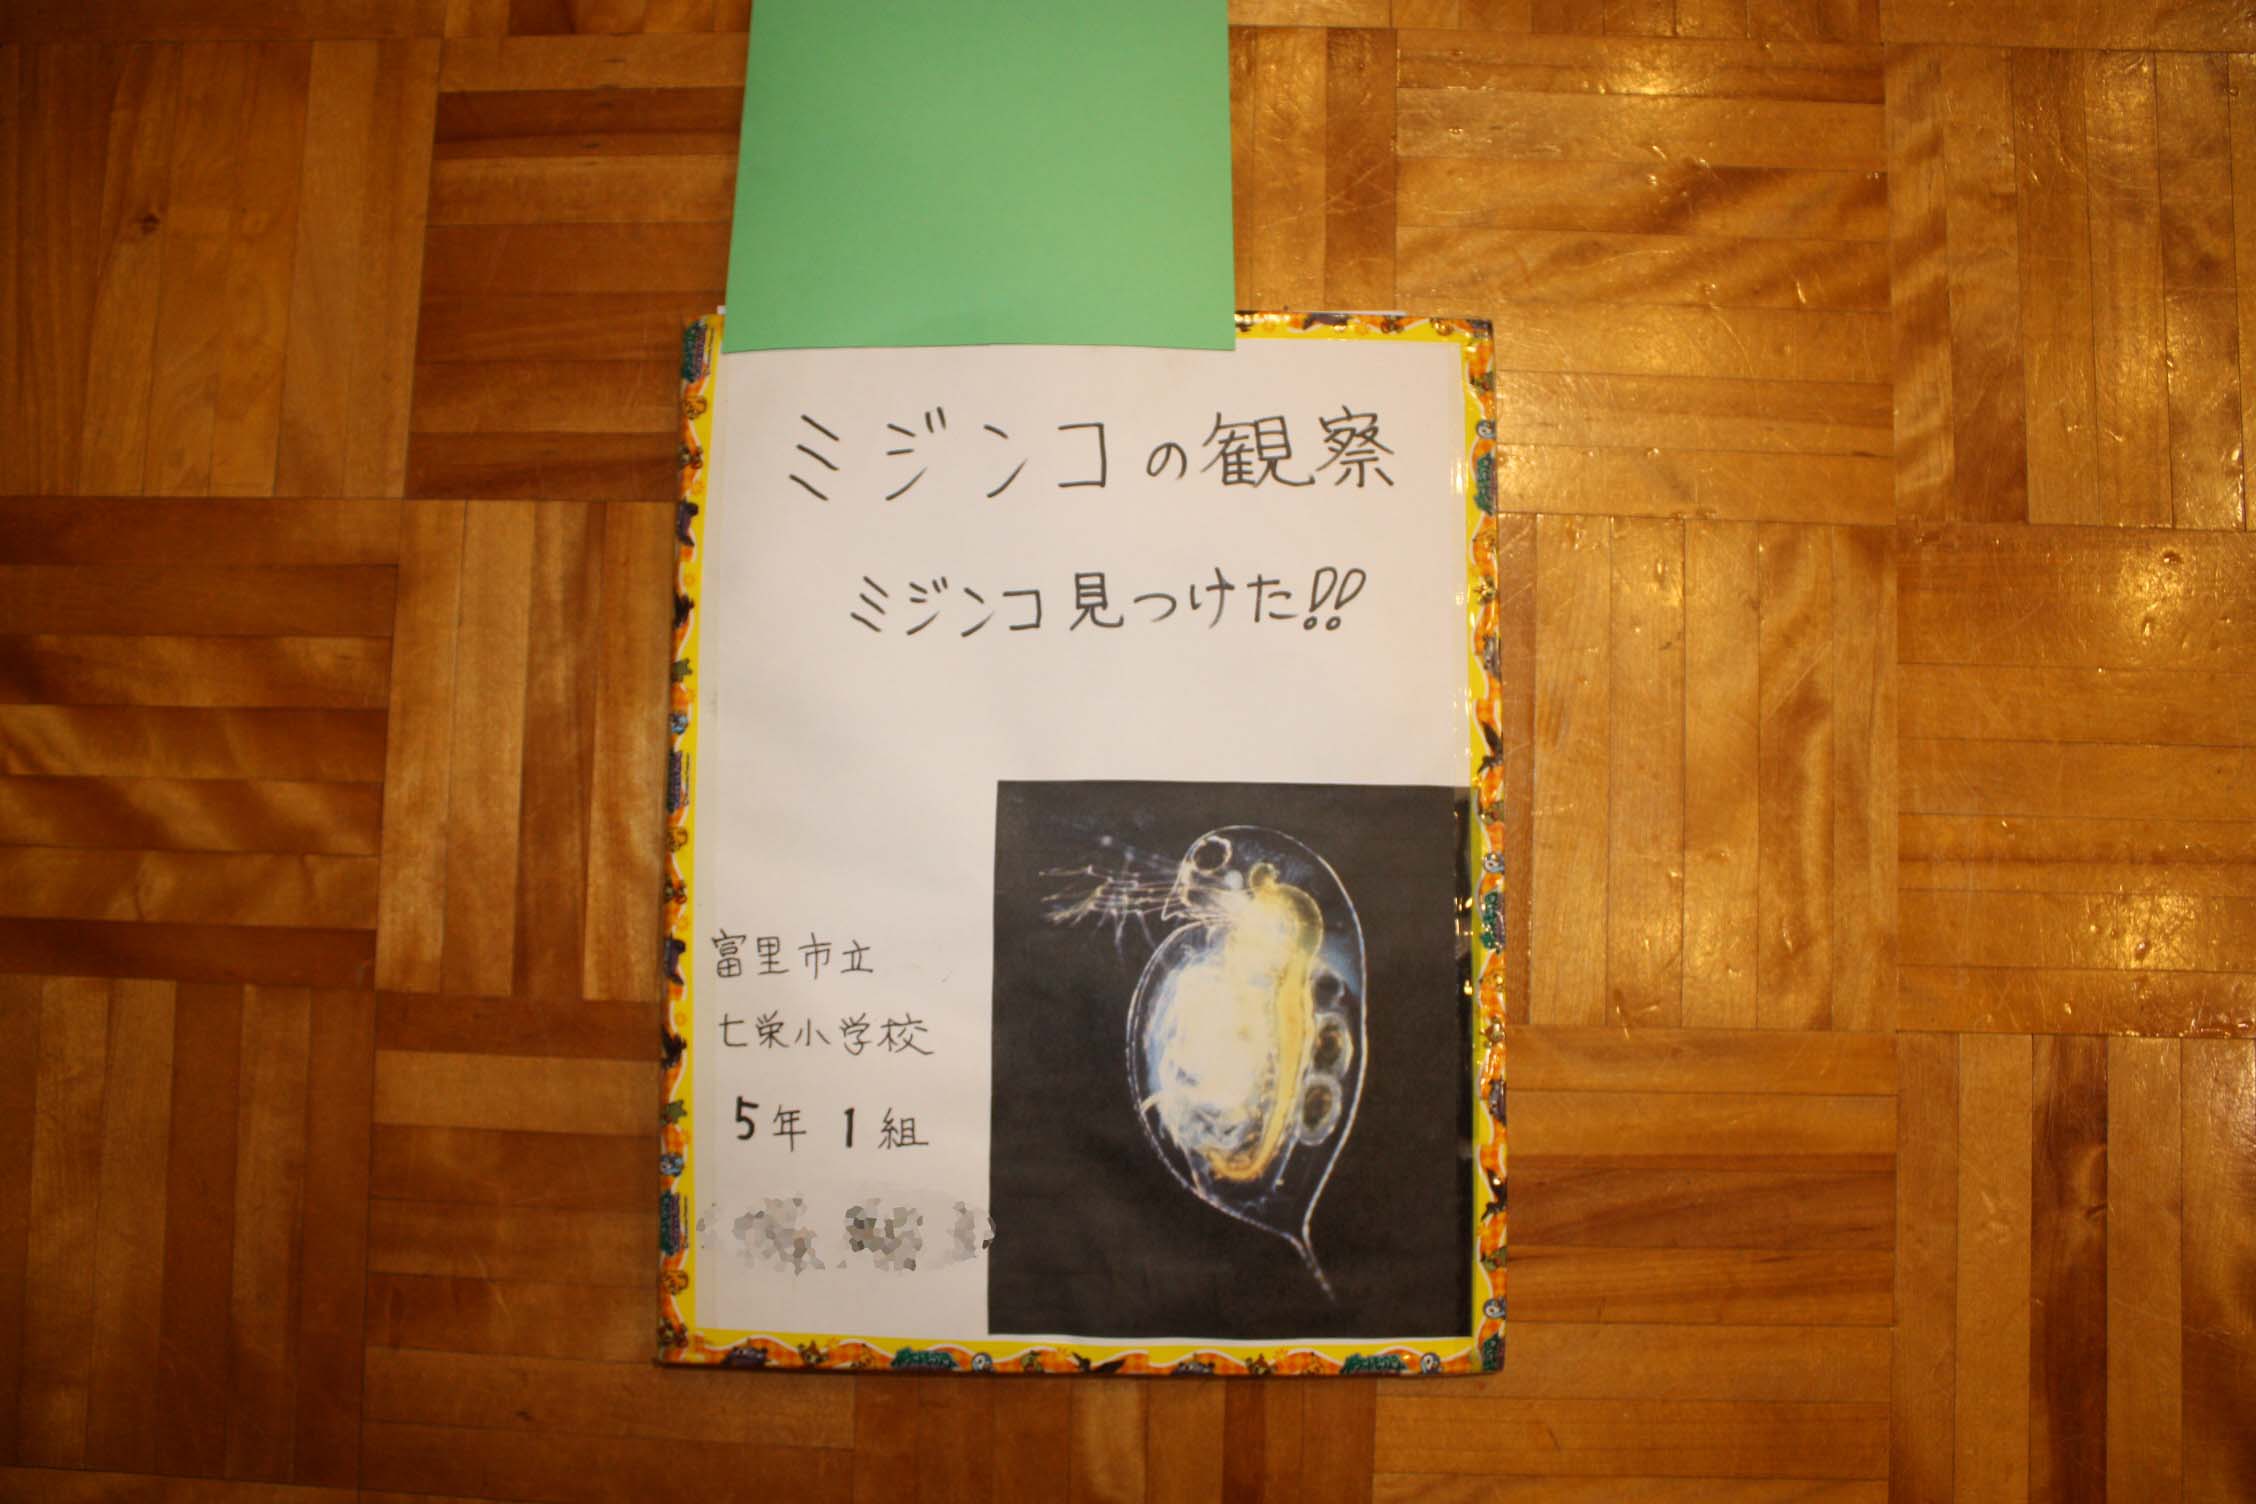 ミジンコの観察
ミジンコ見つけた!!
富里市立
七栄小学校
5年 1組